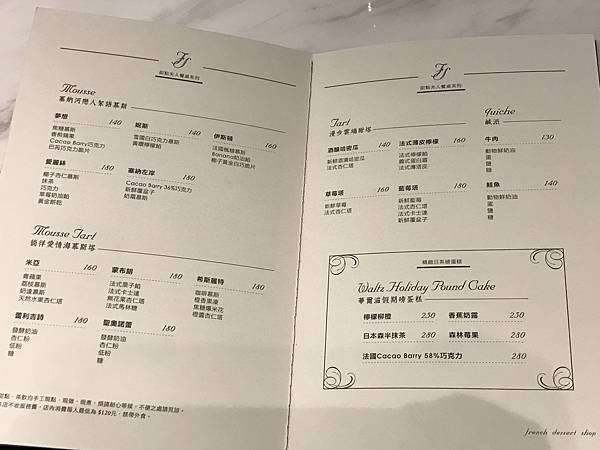 甜點夫人餐桌系列
Mousse
塞納河戀人絮語慕斯
夢想 140
焦糖慕斯
香煎糖栗
Cacao Barry巧克力
巴芮巧克力脆片
妮斯 140
雪國白巧克力慕斯
黃櫻檸檬餡
伊斯頓 160
法國楓糖慕斯
Banana奶油餡
椰子黃金白巧脆片
愛麗絲 180
椰子杏仁慕斯
抹茶
巧克力
草莓奶油餡
黃金餅乾
塞納左岸 180
Cacao Barry 36%巧克力
新鮮覆盆子
奶霜慕斯
Mousse Tart
徜徉愛情海慕斯塔
米亞 160
青蘋果
荔枝慕斯
奶蓮慕斯
天然水果杏仁塔
蒙布朗 180
法式栗子餡
法式卡士達
無花果杏仁塔
法式馬林糖
希斯麗特 180
咖啡慕斯
橙香果凍
焦糖爆米花
橙醬杏仁塔
雷利吉詩 180
發酵奶油
杏仁粉
低粉
糖
聖奧諾雷 180
發酵奶油
杏仁粉
糖
甜點、茶飲均手工現點、現做、現煮，煩請耐心等候，不便之處請見諒。
店不收服務費，店內消費每人最低為 $120元，禁帶外食。
甜點夫人餐桌系列
Tart
漫步雲端甜塔
酒釀哈蜜瓜 140
新鮮酒漬哈蜜瓜
法式杏仁塔
法式薄皮檸檬 160
法式檸檬餡
義式蛋白霜
法式薄塔皮
草莓塔 180
新鮮草莓
法式杏仁塔
藍莓塔 180
新鮮藍莓
法式杏仁塔
法式卡士達
新鮮覆盆子
Quiche
鹹派
牛肉 130
動物鮮奶油
蛋
鹽
糖
鮭魚 140
動物鮮奶油
蛋
鹽
糖
精緻日系磅蛋糕
Waltz Holiday Pound Cake
華爾滋假期磅蛋糕
檸檬柳橙 250
香蕉奶露 250
日本森半抹茶 280
森林莓果 280
法國Cacao Barry 58%巧克力 280
french dessert shop